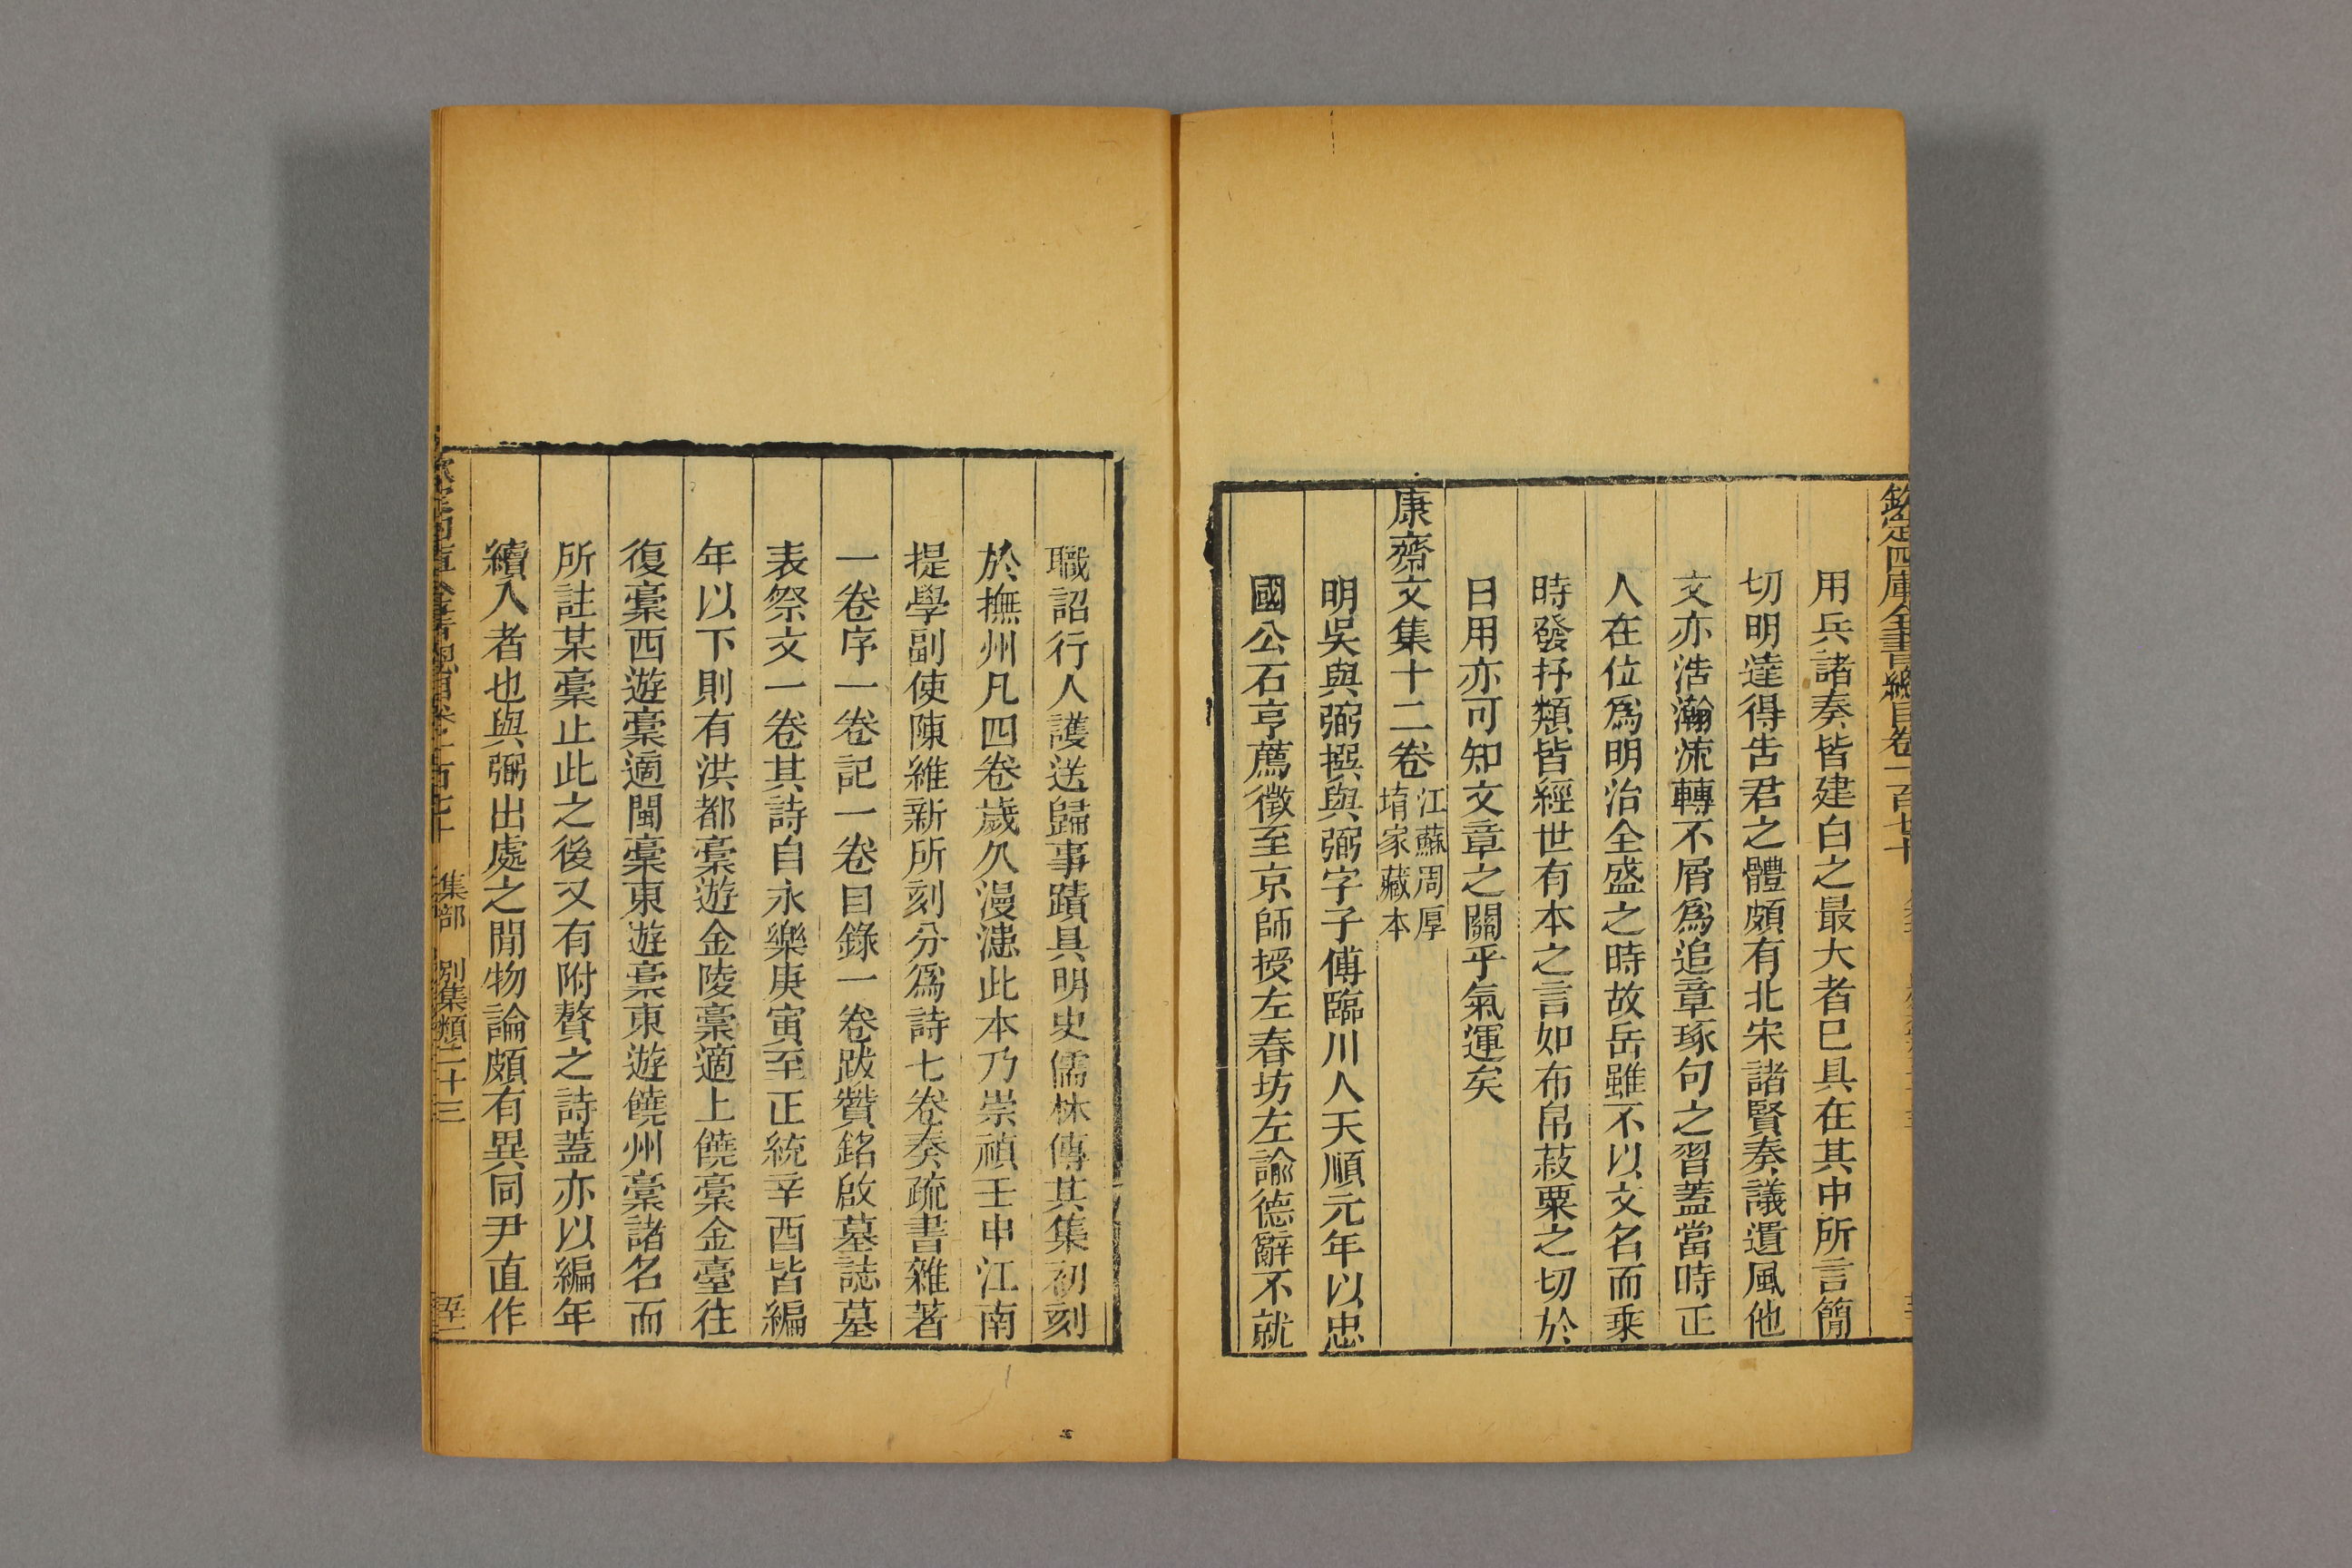 欽定四庫全書總目卷一百七十
用兵諸奏皆建白之最大者已具在其中所言簡
切明達得告君之體頗有北宋諸賢奏議遺風他
文亦浩瀚流轉不屑爲追章琢句之習蓋當時正
人在位爲明治全盛之時故岳雖不以文名而乘
時發抒類皆經世有本之言如布帛菽粟之切於
日用亦可知文章之關乎氣運矣
康齋文集十二卷
江蘇周厚
堉家藏本
明吳與弼撰與弼字子傅臨川人天順元年以忠
國公石亨薦徵至京師授左春坊左諭德辭不就
職詔行人護送歸事蹟具明史儒林傳其集初刻
於撫州凡四卷歲久漫漶此本乃崇禎壬申江南
提學副使陳維新所刻分爲詩七卷奏疏書雜著
一卷序一卷記一卷目錄一卷跋贊銘啟墓誌墓
表祭文一卷其詩自永樂庚寅至正統辛酉皆編
年以下則有洪都稾遊金陵稾適上饒稾金臺往
復稾西遊稾適閩稾東遊稾東遊饒州稾諸名而
所註某稾止此之後又有附贅之詩蓋亦以編年
續入者也與弼出處之閒物論頗有異同尹直作
集部 別集類二十三